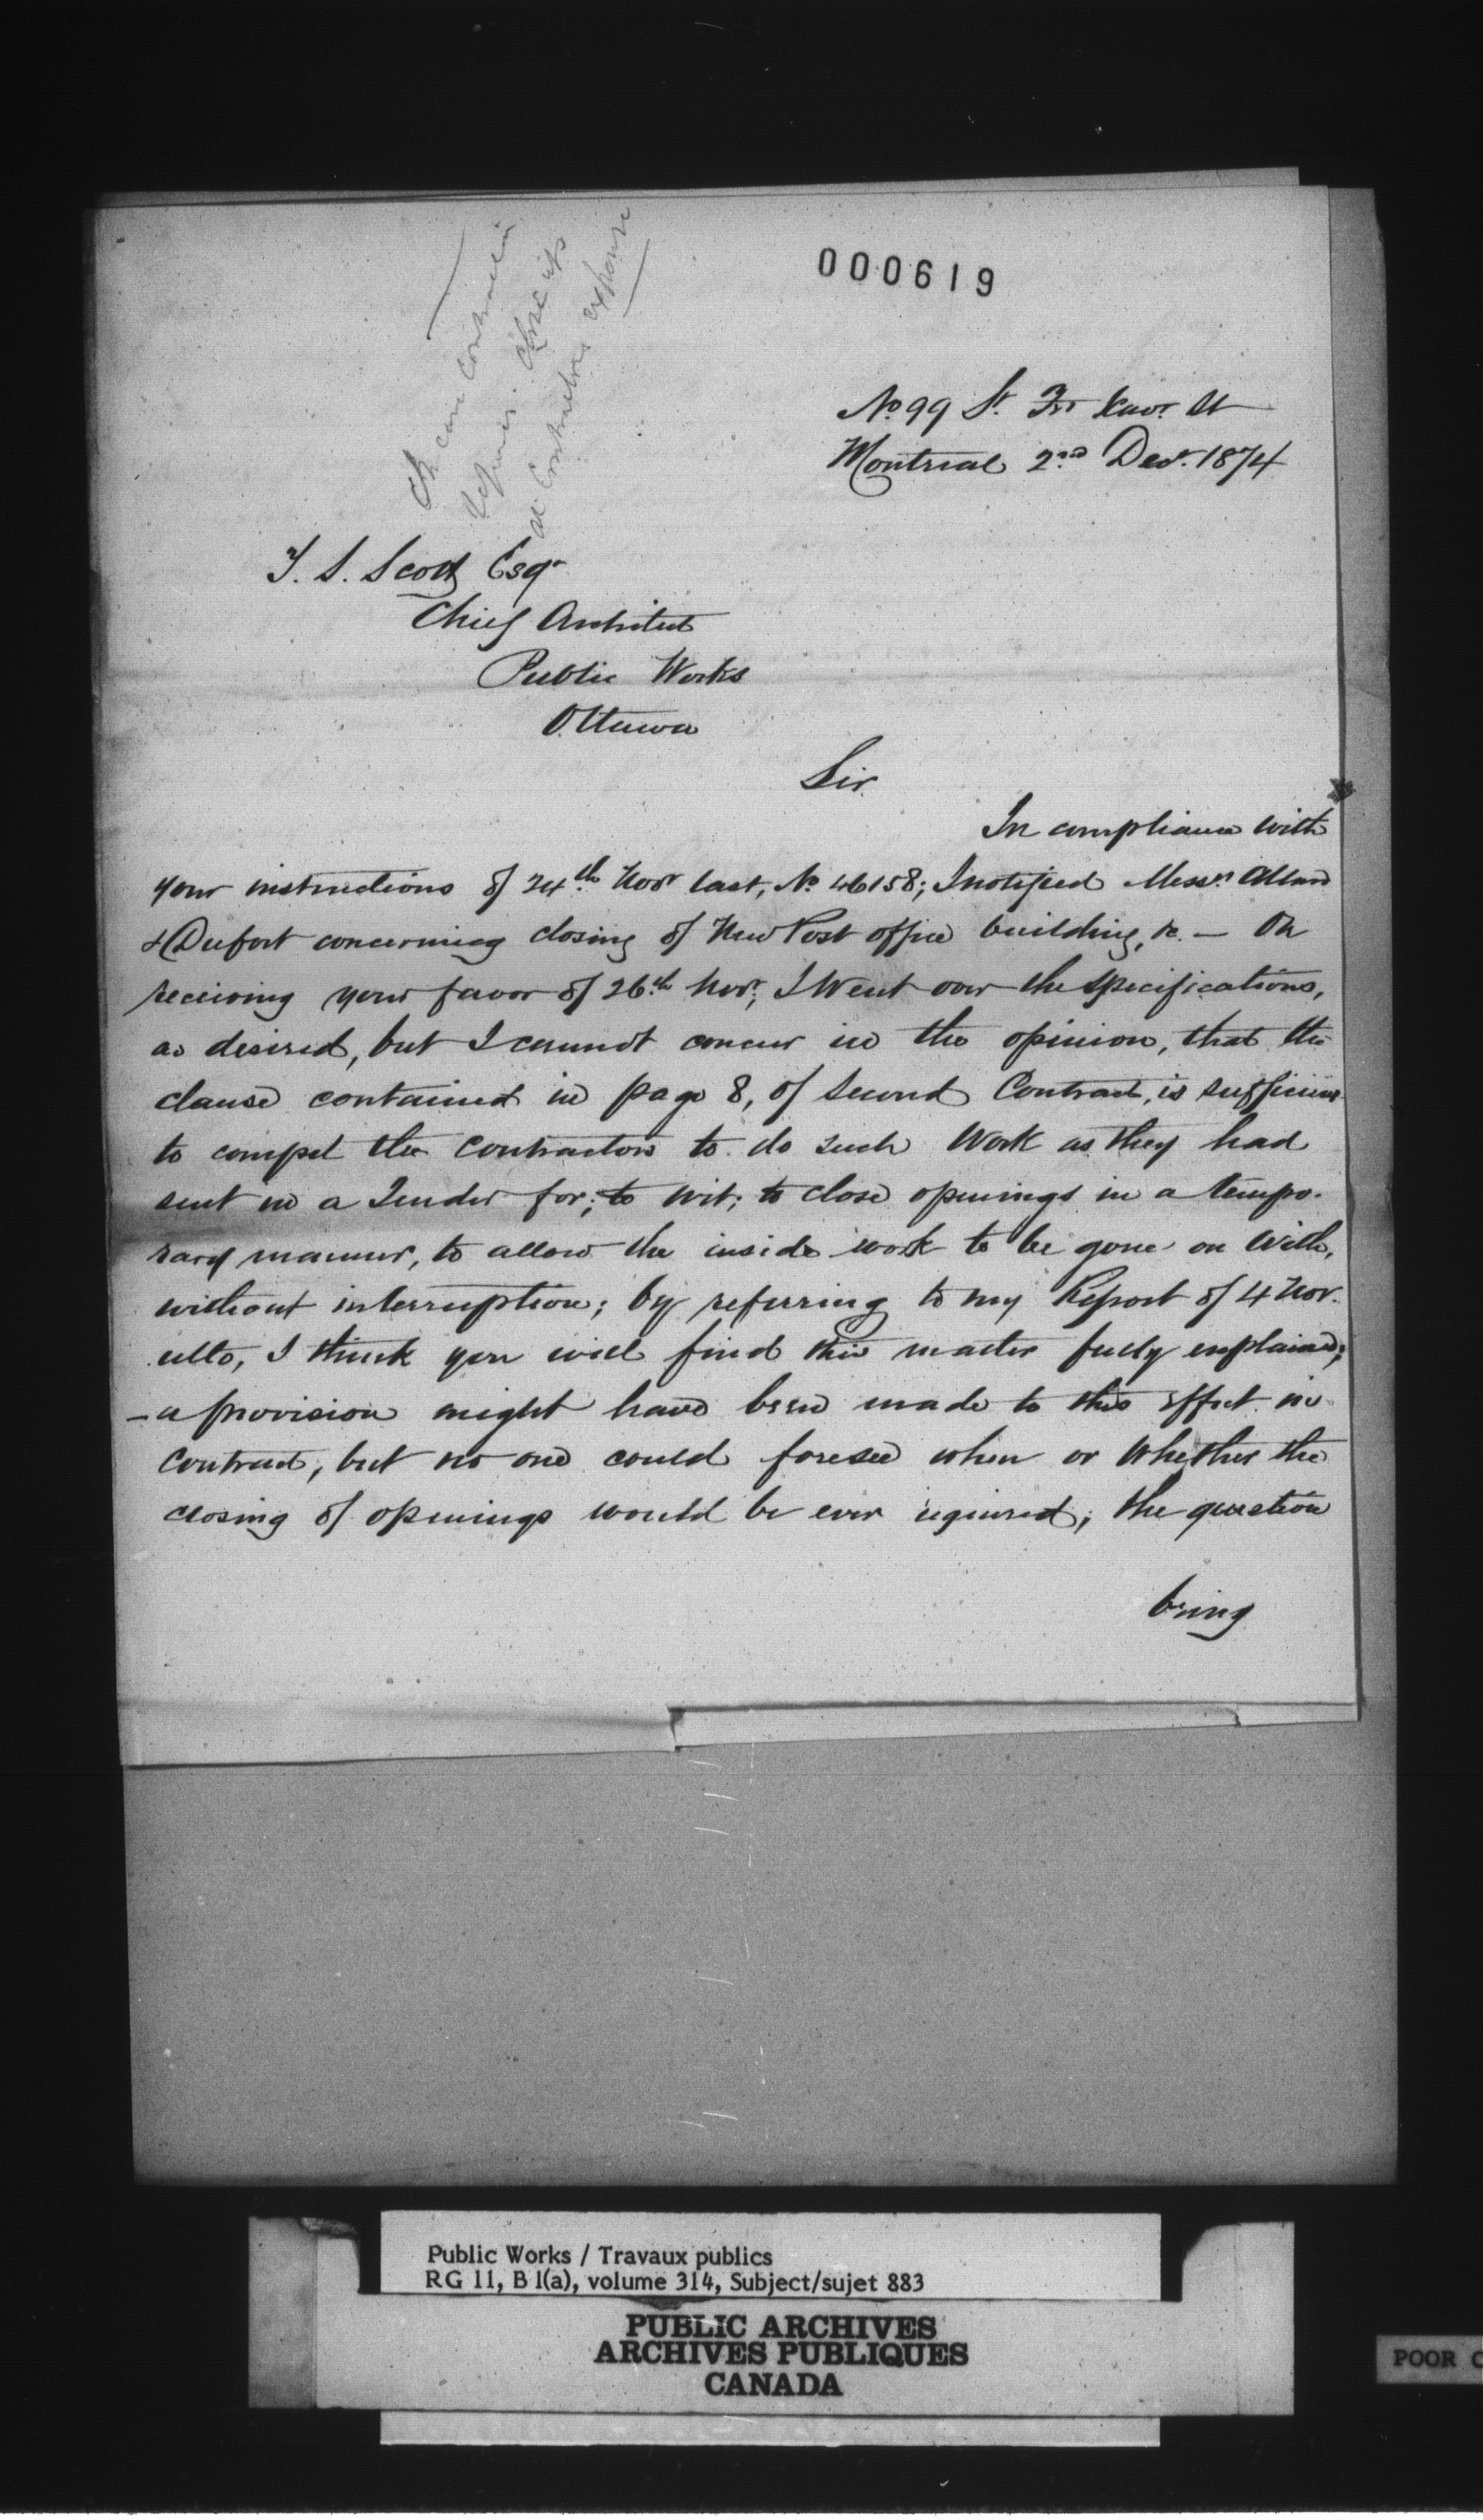 000619
In case contractor
refuses close up
at Contractors expense
No 99 St. Frs Xavr. St
Montreal 2nd Decr. 1874
T. S. Scott Esqr
Chief Architect
Public Works
Ottawa
Sir
In compliance with
your instructions of 24th Novr last, No 46158; I notified Messrs Allard
& Dufort concerning closing of New Post office building, &c. — On
receiving your favor of 26th Novr; I Went over the specifications,
as desired, but I cannot concur in the opinion, that the
clause contained in page 8, of Second Contract, is sufficient
to compel the contractors to do such Work as they had
sent in a Tender for; to wit; to close openings in a tempo-
rary manner, to allow the inside work to be gone on with,
without interruption; by referring to my Report of 4 Nov.
ulto, I think you will find this matter fully explained;
— a provision might have been made to this effect in
Contract, but no one could foresee when or Whether the
closing of openings would be ever required; the question
being
Public Works / Travaux publics
RG 11, B 1(a), volume 314, Subject/sujet 883
PUBLIC ARCHIVES
ARCHIVES PUBLIQUES
CANADA
POOR